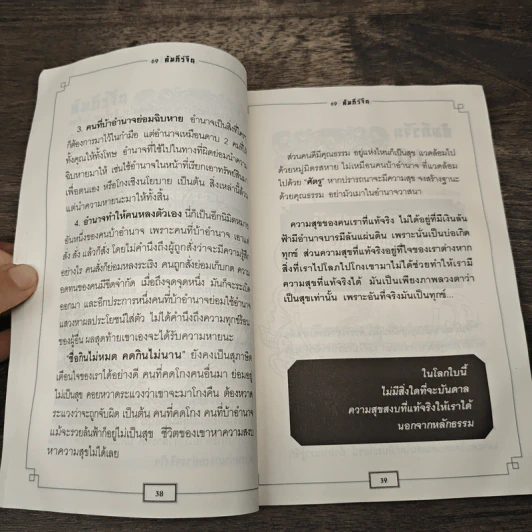 ๑๑ คัมภีร์จิต
3. คนที่บ้าอำนาจย่อมฉิบหาย อำนาจเป็นสิ่งที่
ก็ต้องการมาไว้ในกำมือ แต่อำนาจเหมือนดาบ 2 คมที่ให้
ทั้งคุณให้ทั้งโทษ อำนาจที่ใช้ไปในทางที่ผิดย่อมนำความ
ฉิบหายมาให้ เช่นใช้อำนาจในหน้าที่เรียกเอาทรัพย์สิน
เพื่อตนเอง หรือโกงเชิงนโยบาย เป็นต้น สิ่งเหล่านี้ล้วน
แต่นำความหายนะมาให้ทั้งสิ้น
4. อำนาจทำให้คนหลงตัวเอง นี่ก็เป็นอีกนิมิตหมาย
อันหนึ่งของคนบ้าอำนาจ เพราะคนที่บ้าอำนาจ เอาแต่
สั่ง สั่ง แล้วก็สั่ง โดยไม่คำนึงถึงผู้ถูกสั่งว่าจะมีความรู้สึก
อย่างไร คนสั่งก็ย่อมหลงระเริง คนถูกสั่งย่อมเก็บกด ความ
อดทนของคนมีขีดจำกัด เมื่อถึงจุดจุดหนึ่ง มันก็จะระเบิด
ออกมา และอีกประการหนึ่งคนที่บ้าอำนาจย่อมใช้อำนาจ
แสวงหาผลประโยชน์ใส่ตัว ไม่ได้คำนึงถึงความทุกข์ร้อน
ของผู้อื่น ผลสุดท้ายเขาเองจะได้รับความหายนะ
"ซื่อกินไม่หมด คดกินไม่นาน" ยังคงเป็นสุภาษิต
เตือนใจของเราได้อย่างดี คนที่คดโกงคนอื่นมา ย่อมอยู่
ไม่เป็นสุข คอยหวาดระแวงว่าเขาจะมาโกงคืน ต้องหวาด
ระแวงว่าจะถูกจับผิด เป็นต้น คนที่คดโกง คนที่บ้าอำนาจ
แม้จะรวยล้นฟ้าก็อยู่ไม่เป็นสุข ชีวิตของเขาหาความสงบ
หาความสุขไม่ได้เลย
38
๑๑ คัมภีร์จิต
ส่วนคนดีมีคุณธรรม อยู่แห่งไหนก็เป็นสุข แวดล้อมไป
ด้วยหมู่มิตรสหาย ไม่เหมือนคนบ้าอำนาจ ที่แวดล้อม
ไปด้วย "ศัตรู" หากปรารถนาจะมีความสุข จงสร้างฐานะ
ด้วยคุณธรรม อย่ามัวเมาในอำนาจวาสนา
ความสุขของคนเราที่แท้จริง ไม่ได้อยู่ที่มีเงินล้น
ฟ้ามีอำนาจบารมีล้นแผ่นดิน เพราะนั่นเป็นบ่อเกิด
ทุกข์ ส่วนความสุขที่แท้จริงอยู่ที่ใจของเราต่างหาก
สิ่งที่เราไปโลภไปโกงเขามาไม่ได้ช่วยทำให้เรามี
ความสุขที่แท้จริงได้ มันเป็นเพียงภาพลวงตาว่า
เป็นสุขเท่านั้น เพราะอันที่จริงมันเป็นทุกข์...
ในโลกใบนี้
ไม่มีสิ่งใดที่จะบันดาล
ความสุขสงบที่แท้จริงให้เราได้
นอกจากหลักธรรม
39